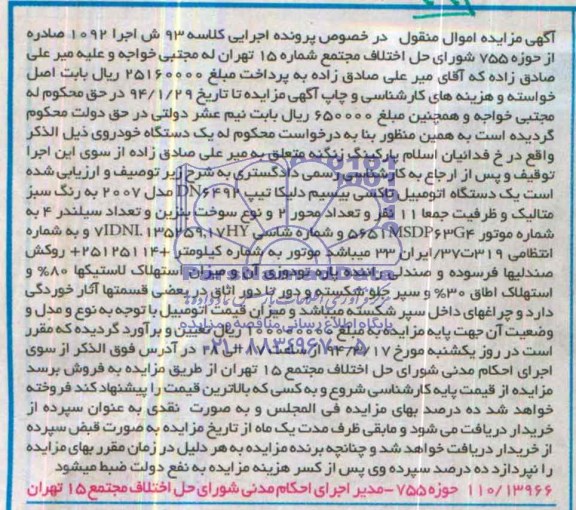 آگهی مزایده اموال منقول در خصوص پرونده اجرایی کلاسه ۹۳ ش اجرا ۱۰۹۲ صادره
از حوزه ۷۵۵ شورای حل اختلاف مجتمع شماره ۱۵ تهران له مجتبی خواجه و علیه میر علی
صادق زاده که آقای میر علی صادق زاده به پرداخت مبلغ ۲۵۱۶۰۰۰۰ ریال بابت اصل
خواسته و هزینه های کارشناسی و چاپ آگهی مزایده تا تاریخ ۹۴/۱/۲۹ در حق محکوم له
مجتبی خواجه و همچنین مبلغ ۶۵۰۰۰۰ ریال بابت نیم عشر دولتی در حق دولت محکوم
گردیده است به همین منظور بنا به درخواست محکوم له یک دستگاه خودروی ذیل الذکر
واقع در خ فدائیان اسلام پارکینگ زنگنه متعلق به میر علی صادق زاده از سوی این اجرا
توقیف و پس از ارجاع به کارشناسی رسمی دادگستری به شرح زیر توصیف و ارزیابی شده
است یک دستگاه اتومبیل تاکسی بیسیم دلیکا تیپ DN۶۴۹۲ مدل ۲۰۰۷ به رنگ سبز
متالیک و ظرفیت جمعا ۱۱ نفر و تعداد محور ۲ و نوع سوخت بنزین و تعداد سیلندر ۴ به
شماره موتور ۵۶۵۱MSDP۶۳G۴ و شماره شاسی و به شماره
انتظامی ۳۱۹ت۳۷/ایران ۳۳ میباشد موتور به شماره کیلومتر ۲۵۱۲۵۱۱۴+ روکش
صندلیها فرسوده و صندلی راننده پاره تودوزی آن و میزان استهلاک لاستیکها ۸۰% و
استهلاک اطاق ۳۰% و سپر جلو شکسته و دور تا دور اتاق در بعضی قسمتها آثار خوردگی
دارد و چراغهای داخل سپر شکسته میباشد و میزان قیمت اتومبیل با توجه به نوع و مدل و
وضعیت آن جهت پایه مزایده به مبلغ ریال تعیین و برآورد گردیده که مقرر
است در روز یکشنبه مورخ از ساعت در آدرس فوق الذکر از سوی
اجرای احکام مدنی شورای حل اختلاف مجتمع ۱۵ تهران از طریق مزایده به فروش برسد
مزایده از قیمت پایه کارشناسی شروع و به کسی که بالاترین قیمت را پیشنهاد کند فروخته
خواهد شد ده درصد بهای مزایده فی المجلس و به صورت نقدی به عنوان سپرده از
خریدار دریافت می شود و مابقی ظرف مدت یک ماه از تاریخ مزایده به صورت قبض سپرده
از خریدار دریافت خواهد شد و چنانچه برنده مزایده به هر دلیل در زمان مقرر بهای مزایده
را نپردازد ده درصد سپرده وی پس از کسر هزینه مزایده به نفع دولت ضبط میشود
۱۱۰/۱۳۹۶۶ حوزه ۷۵۵ -مدیر اجرای احکام مدنی شورای حل اختلاف مجتمع ۱۵ تهران
پایگاه اطلاع رسانی مناقصه و مزایده